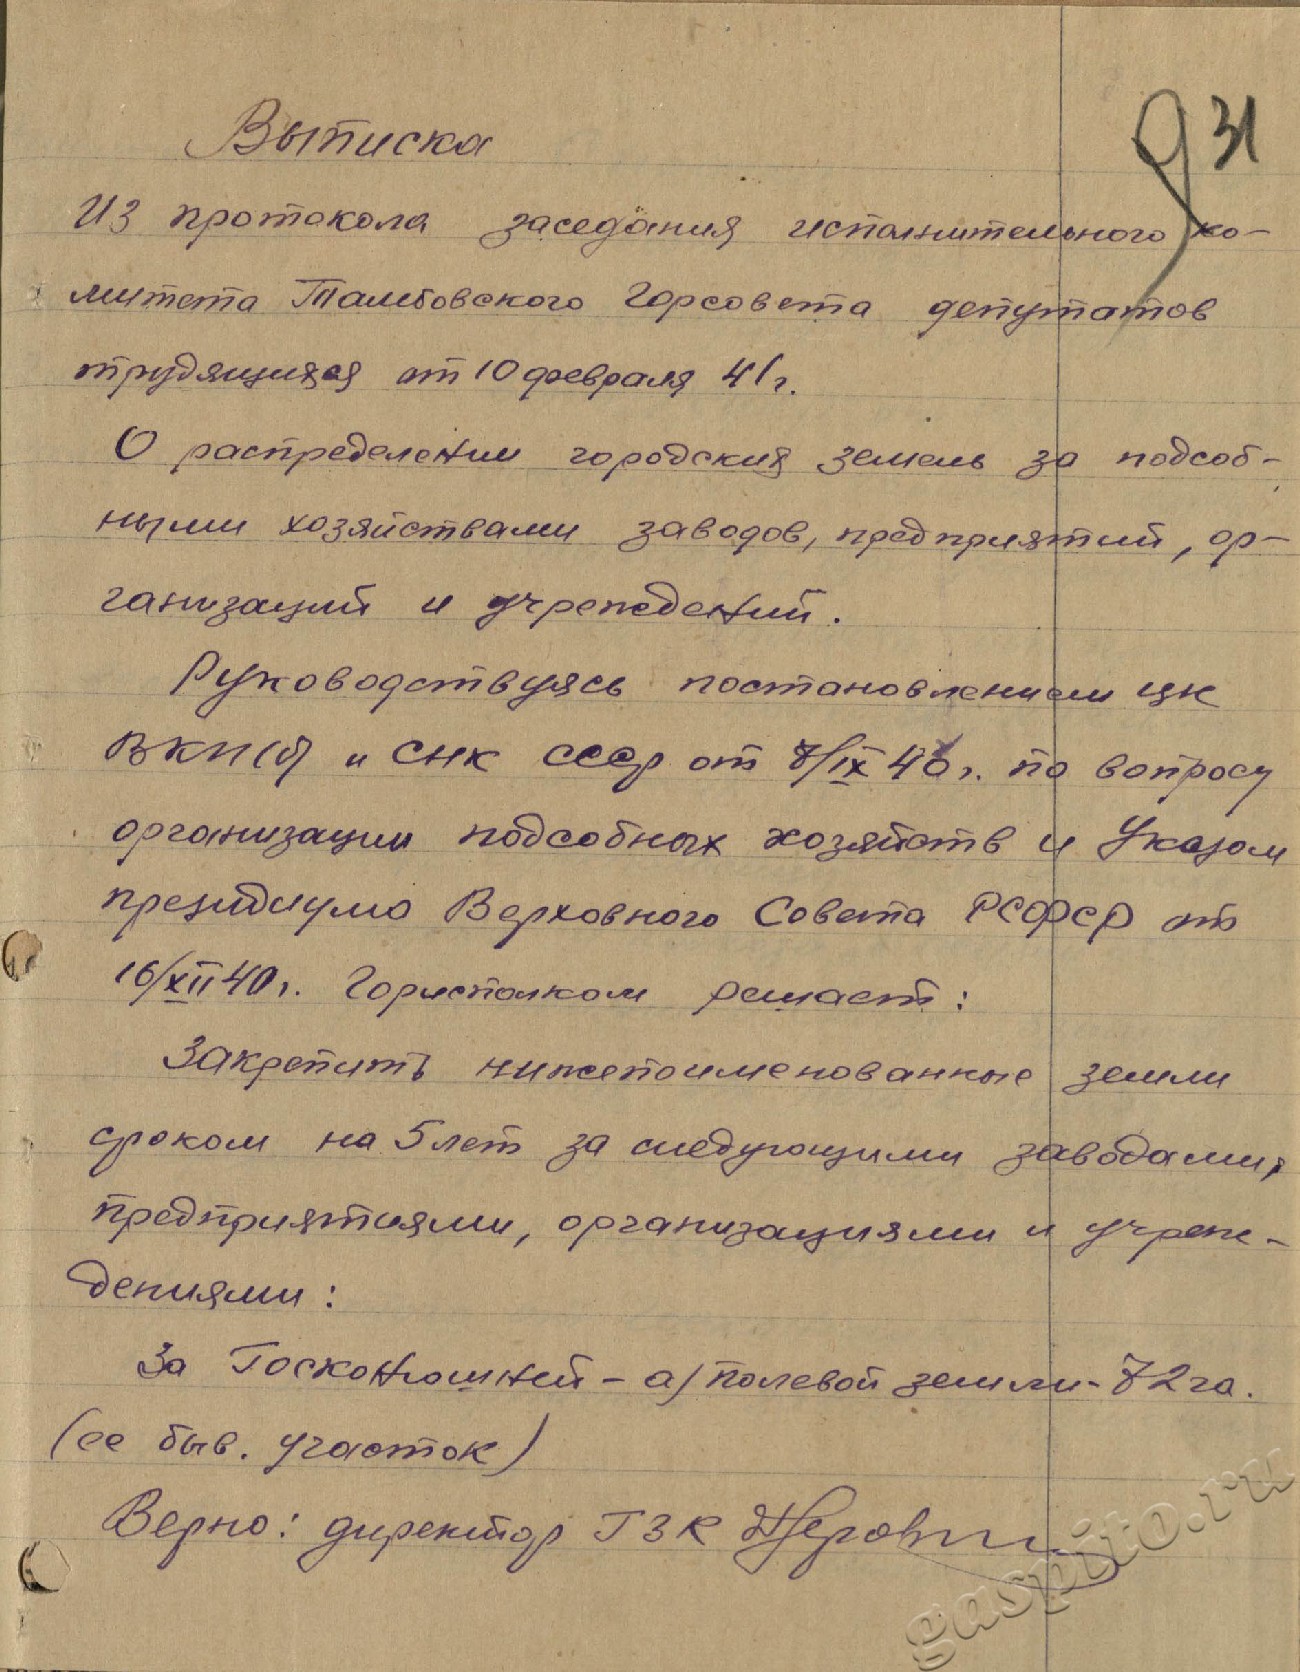 31
Выписка
Из протокола заседания исполнительного ко-
митета Тамбовского Горсовета депутатов
трудящихся от 10 февраля 41 г.
О распределении городских земель за подсоб-
ными хозяйствами заводов, предприятий, ор-
ганизаций и учреждений.
Руководствуясь постановлением ЦК
ВКП(б) и СНК СССР от 7/IX 40 г. по вопросу
организации подсобных хозяйств и Указом
президиума Верховного Совета РСФСР от
16/XII 40 г. Горисполком решает:
Закрепить нижепоименованные земли
сроком на 5 лет за следующими заводами,
предприятиями, организациями и учреж-
дениями:
За Госконюшней - а) полевой земли - 72 га.
(ее быв. участок)
Верно: директор ГЗК
gaspito.ru